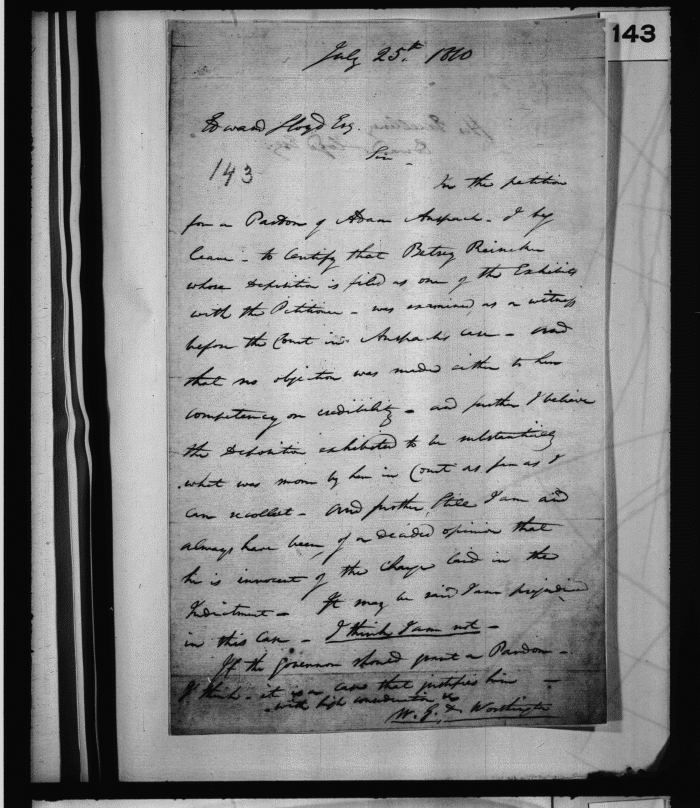 143
July 25th. 1810
Edward Lloyd Esq.
Sir -
143
In the petition
for a Pardon of Adam Anspach - I beg
leave - to Certify that Betsey Reinicker
whose Deposition is filed as one of the Exhibits
with the Petition - was examined as a witness
before the Court in Anspachs case - and
that no objection was made either to her
competency or credibility - and further I believe
the Deposition exhibited to be substantially
what was sworn by her in Court as far as I
can recollect - And further still I am and
always have been, of a decided opinion that
he is innocent of the Charge laid in the
Indictment - It may be said I am prejudiced
in this Case - I think I am not -
If the Governor should grant a Pardon -
I think - it is a case that justifies him -
with high consideration
W. G. D. Worthington